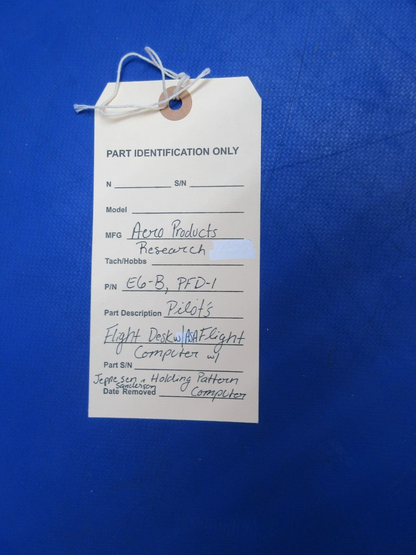 PART IDENTIFICATION ONLY
N ____________ S/N ____________
Model ____________
MFG Aero Products
Research
Tach/Hobbs ____________
P/N E6-B, PFD-1
Part Description Pilot's
Flight Desk w/ASA Flight
Computer w/
Part S/N ____________
Jeppesen + Holding Pattern
Sanderson
Date Removed Computer